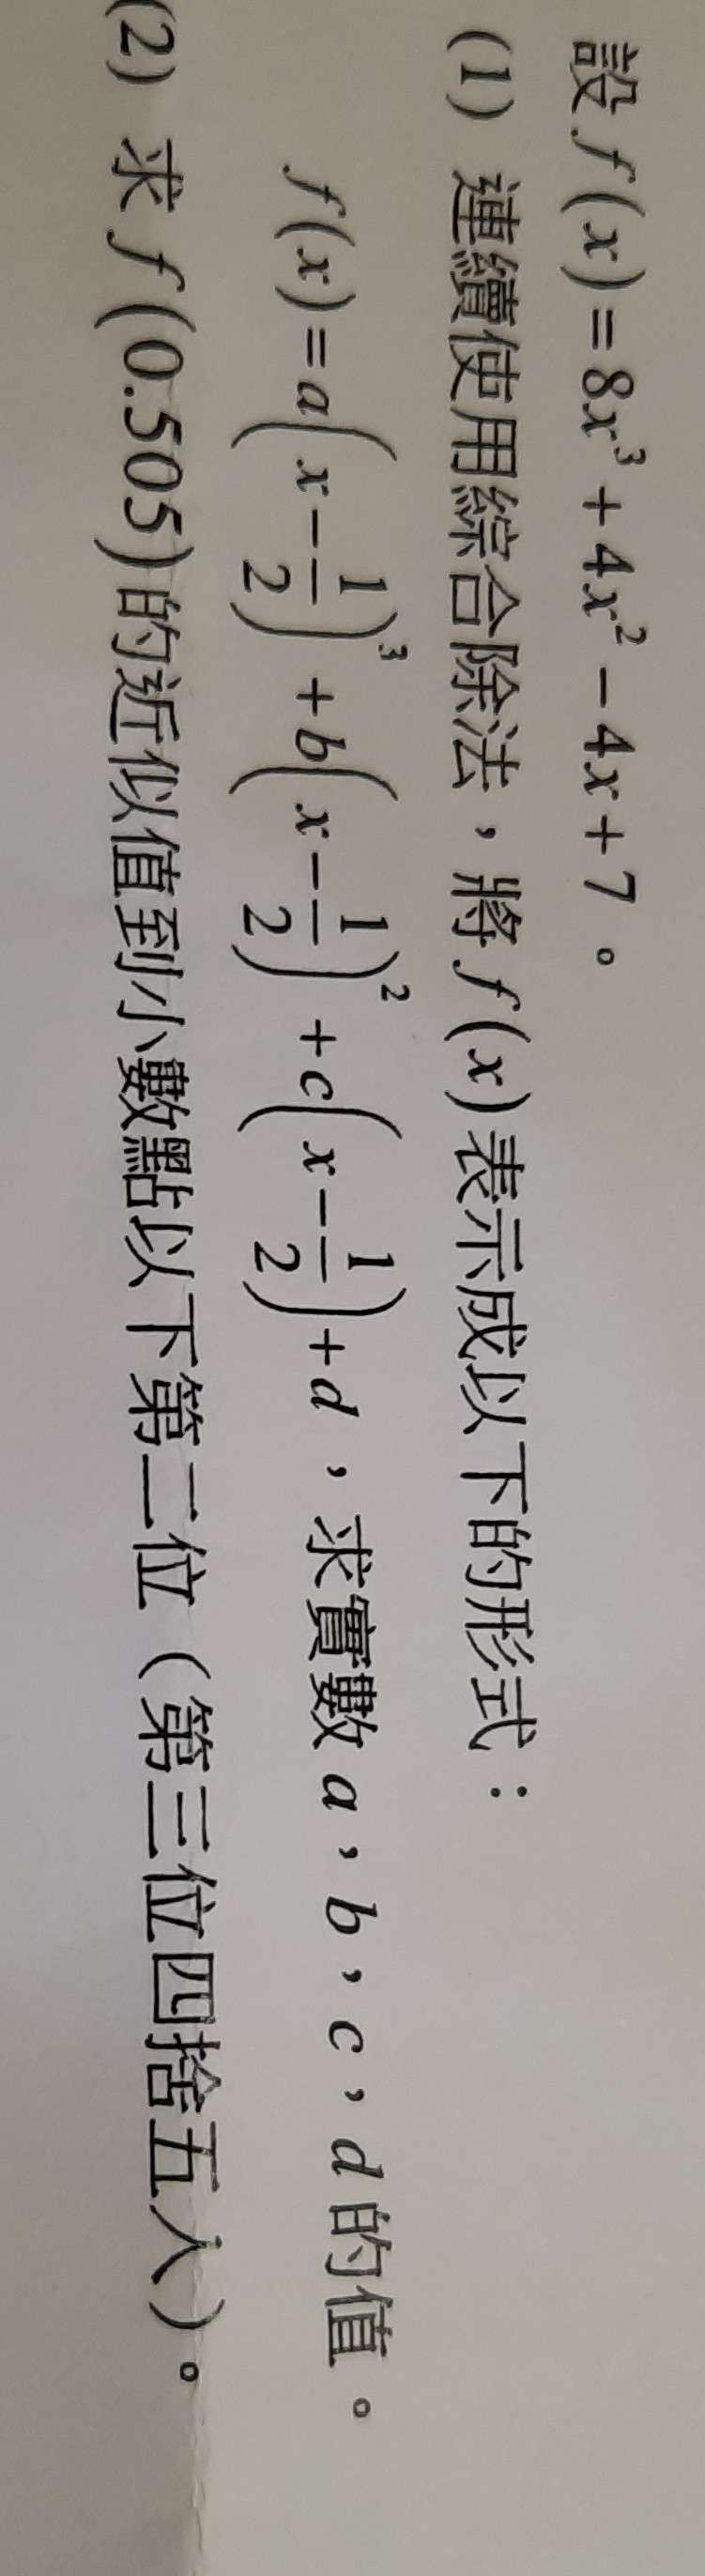 設 f(x)=8x³+4x²−4x+7。
(1) 連續使用綜合除法，將 f(x) 表示成以下的形式：
f(x)=a(x−1/2)³+b(x−1/2)²+c(x−1/2)+d，求實數 a，b，c，d 的值。
(2) 求 f(0.505) 的近似值到小數點以下第二位（第三位四捨五入）。